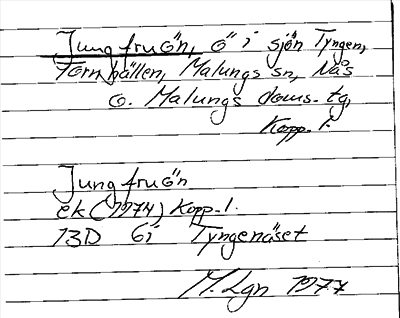 Jungfruön, ö i sjön Tyngen,
Tornhällen, Malungs sn, Nås
o. Malungs doms. tg,
Kopp. l.
Jungfruön
ek (1974) Kopp. l.
13D 6i Tyngenäset
M. Lgn 1977